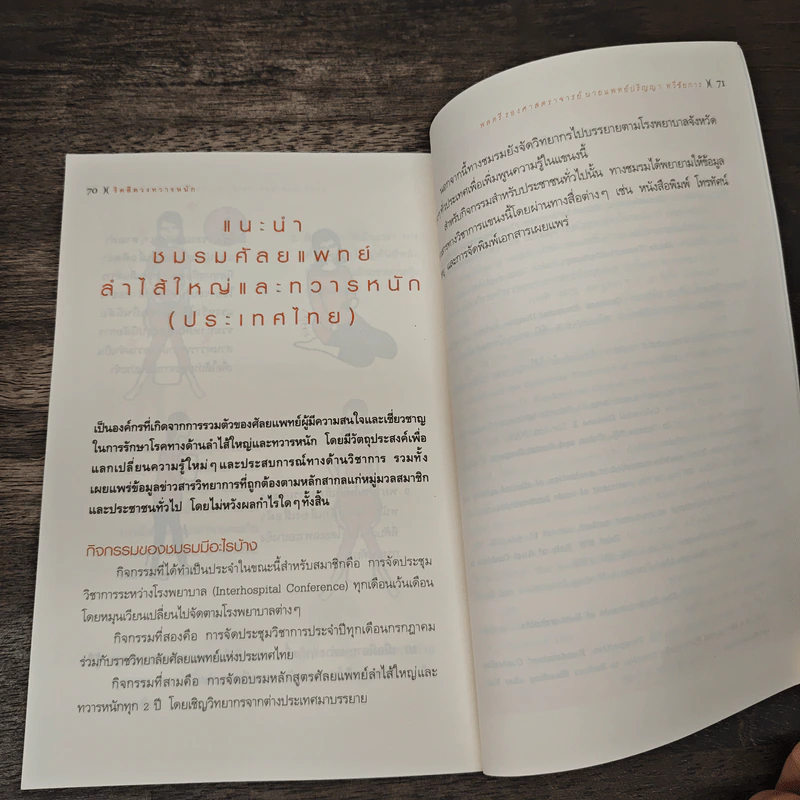 70 ริดสีดวงทวารหนัก
แนะนำ
ชมรมศัลยแพทย์
ลำไส้ใหญ่และทวารหนัก
(ประเทศไทย)
เป็นองค์กรที่เกิดจากการรวมตัวของศัลยแพทย์ผู้มีความสนใจและเชี่ยวชาญ
ในการรักษาโรคทางด้านลำไส้ใหญ่และทวารหนัก โดยมีวัตถุประสงค์เพื่อ
แลกเปลี่ยนความรู้ใหม่ๆ และประสบการณ์ทางด้านวิชาการ รวมทั้ง
เผยแพร่ข้อมูลข่าวสารวิทยาการที่ถูกต้องตามหลักสากลแก่หมู่มวลสมาชิก
และประชาชนทั่วไป โดยไม่หวังผลกำไรใดๆ ทั้งสิ้น
กิจกรรมของชมรมมีอะไรบ้าง
กิจกรรมที่ได้ทำเป็นประจำในขณะนี้สำหรับสมาชิกคือ การจัดประชุม
วิชาการระหว่างโรงพยาบาล (Interhospital Conference) ทุกเดือนเว้นเดือน
โดยหมุนเวียนเปลี่ยนไปจัดตามโรงพยาบาลต่างๆ
กิจกรรมที่สองคือ การจัดประชุมวิชาการประจำปีทุกเดือนกรกฎาคม
ร่วมกับราชวิทยาลัยศัลยแพทย์แห่งประเทศไทย
กิจกรรมที่สามคือ การจัดอบรมหลักสูตรศัลยแพทย์ลำไส้ใหญ่และ
ทวารหนักทุก 2 ปี โดยเชิญวิทยากรจากต่างประเทศมาบรรยาย
พลตรี รองศาสตราจารย์ นายแพทย์ปริญญา ทวีชัยการ 71
นอกจากนี้ทางชมรมยังจัดวิทยากรไปบรรยายตามโรงพยาบาลจังหวัด
ทั่วประเทศเพื่อเพิ่มพูนความรู้ในแขนงนี้
สำหรับกิจกรรมสำหรับประชาชนทั่วไปนั้น ทางชมรมได้พยายามให้ข้อมูล
ทางวิชาการแขนงนี้โดยผ่านทางสื่อต่างๆ เช่น หนังสือพิมพ์ โทรทัศน์
และการจัดพิมพ์เอกสารเผยแพร่